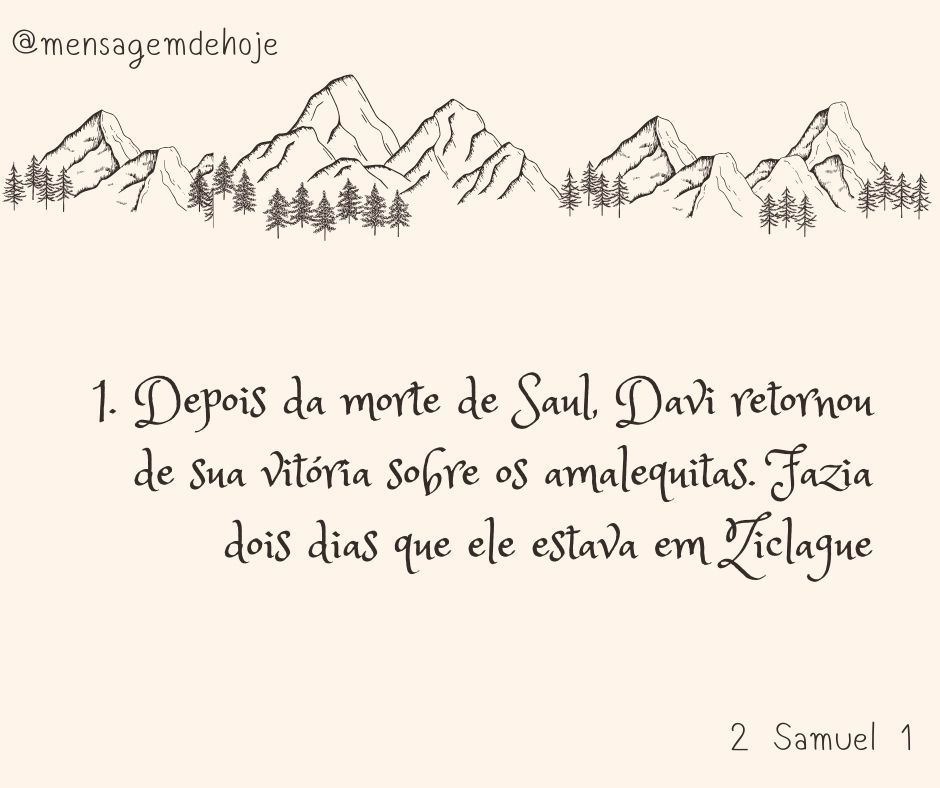 @mensagemdehoje
1. Depois da morte de Saul, Davi retornou
de sua vitória sobre os amalequitas. Fazia
dois dias que ele estava em Ziclague
2 Samuel 1